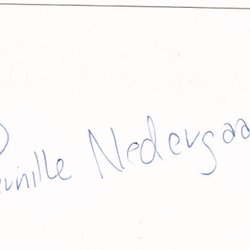 Pernille Nedergaa